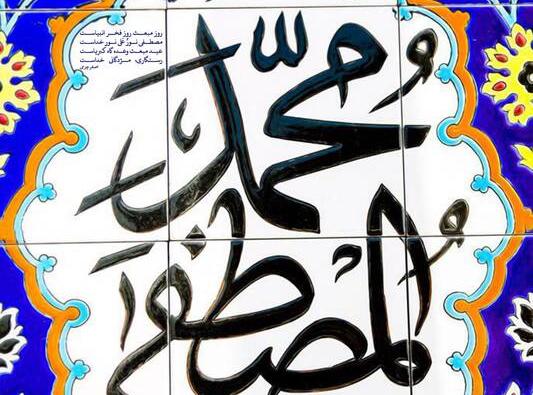 روز مبعث روز فخر انبیاست
مصطفی نورٌ علی نور خداست
عید مبعث وعده گاه کبریاست
رستگاری، مژدگانی خداست
محمد
المصطفی